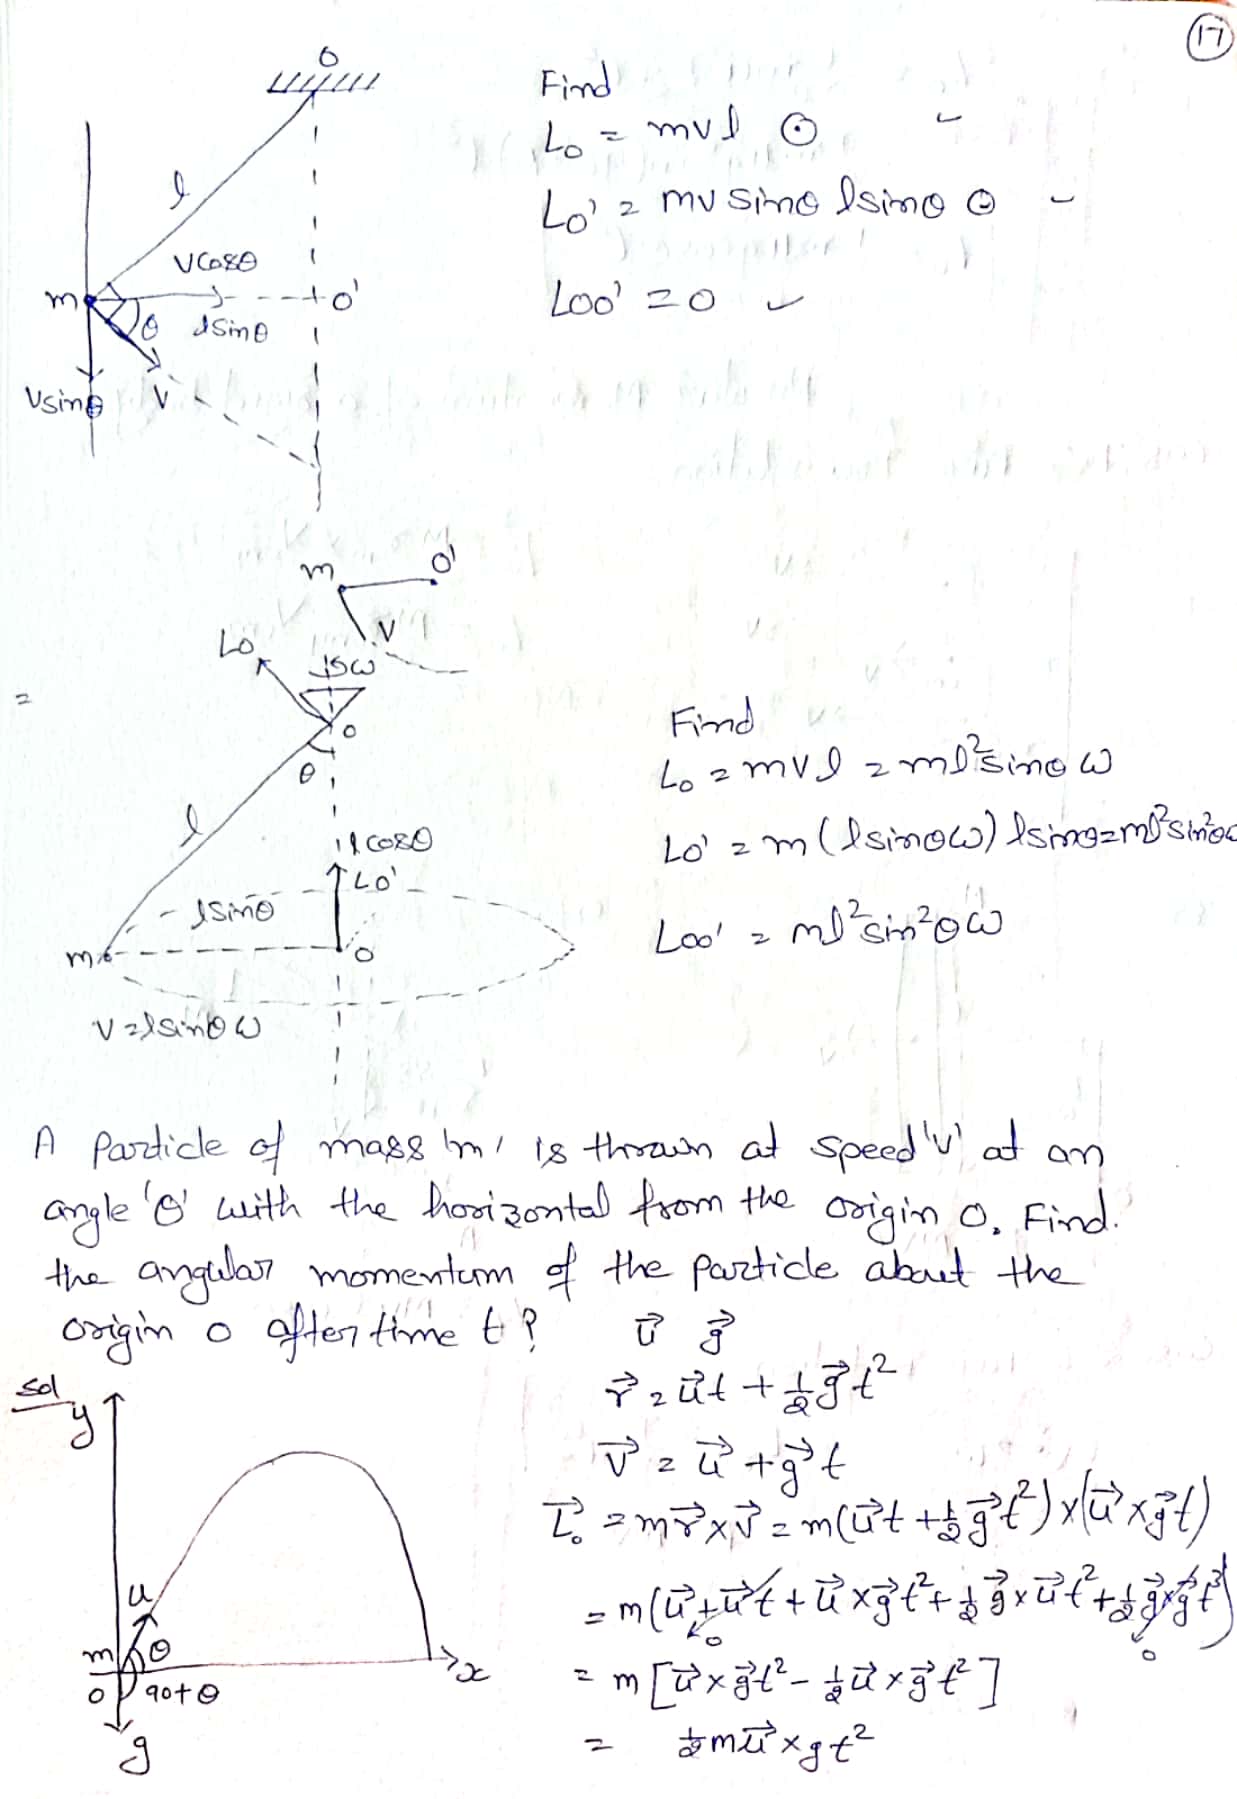 17
O
Find
L₀ = mvl ⊙
L₀' = mv sinθ lsinθ ⊙
Loo' = 0 ✓
l
vcosθ
m
O'
θ
lsinθ
vsinθ
v
m
O'
v
L₀
O
θ
l
lcosθ
L₀'
lsinθ
m
O
v = lsinθ ω
Find
L₀ = mvl = ml²sinθ ω
L₀' = m(lsinθω) lsinθ = ml²sin²θω
Loo' = ml²sin²θω
A particle of mass 'm' is thrown at speed 'v' at an
angle 'θ' with the horizontal from the origin O. Find
the angular momentum of the particle about the
origin O after time t?
u⃗ g⃗
sol
y
u
m
θ
O
90+θ
g
x
r⃗ = u⃗t + ½g⃗t²
v⃗ = u⃗ + g⃗t
L⃗₀ = mr⃗×v⃗ = m(u⃗t + ½g⃗t²)×(u⃗×g⃗t)
= m(u⃗+u⃗t + u⃗×g⃗t² + ½g⃗×u⃗t² + ½g⃗×g⃗t³)
0
0
= m[u⃗×g⃗t² - ½u⃗×g⃗t²]
= ½mu⃗×gt²